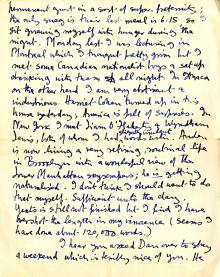 permanent guest in a sort of super fraternity;
the only snag is their last meal is 6.15 so I
sit gnawing myself with hunger during the
night. Monday last I was lecturing in
Montreal which I thought pretty grim but I
met some Canadian nationalist boys & sat up
drinking with them all night. In Ithaca
on the other hand I am very abstract &
industrious. Harriet Cohen turned up in this
house yesterday; America is full of surprises. In
New York I met Wyndham
Lewis, both of whom Auden
is now living a very retiring routine life
in Brooklyn with a wonderful view of the
lower Manhattan skyscrapers; he is getting
naturalised. I don't think I should want to do
that myself. Sufficient unto the day.
Yeats is still not finished but I find I have
forgot the length in my innocence (seems I
have done about 120,000 words.)
I hear you asked Dan over to stay
a weekend which is terribly nice of you. He